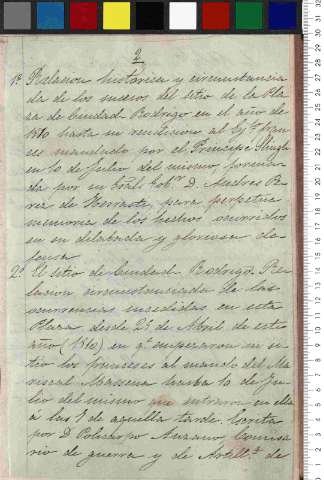 2
1º Relacion histórica y circunstancia
da de los sucesos del sitio de la Pla
za de Ciudad Rodrigo en el año de
1810 hasta su rendicion al Egto fran
ces mandado por el Principe
en 10 de Julio del mismo forma
da por su Gral Gobr D. Andres Pe
rez de Herrasti, para perpetua
memoria de los hechos ocurridos
en su dilatada y gloriosa de
fensa
2º El sitio de Ciudad Rodrigo. Re
lacion circunstanciada de las
ocurrencias sucedidas en esta
Plaza desde 25 de Abril de este
año (1810) en qe empezaron su si
tio los franceses al mando del Ma
riscal Massena hasta 10 de Ju
lio del mismo que entraron en ella
á las 7 de aquella tarde. Escrita
por D Policarpo Anzano, Comisa
rio de guerra y de Artillª de